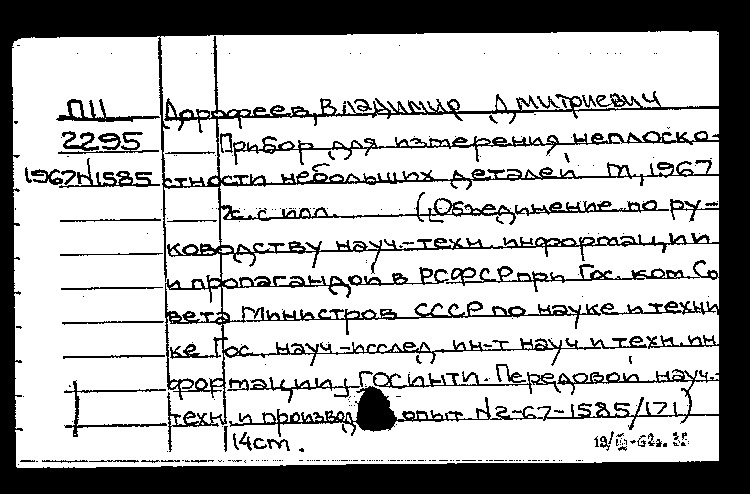 П11
2295
1967N1585
Дорофеев, Владимир Дмитриевич
Прибор для измерения неплоско-
стности небольших деталей М., 1967
с илл. (Объединение по ру-
ководству науч.-техн. информации
и пропагандой в РСФСР при Гос. ком. Со
вета Министров СССР по науке и техни
ке Гос. науч.-исслед. ин-т науч и техн. ин
формации, ГОСИНТИ. Передовой науч.-
техн. и производ опыт N2-67-1585/171)
14 cm.